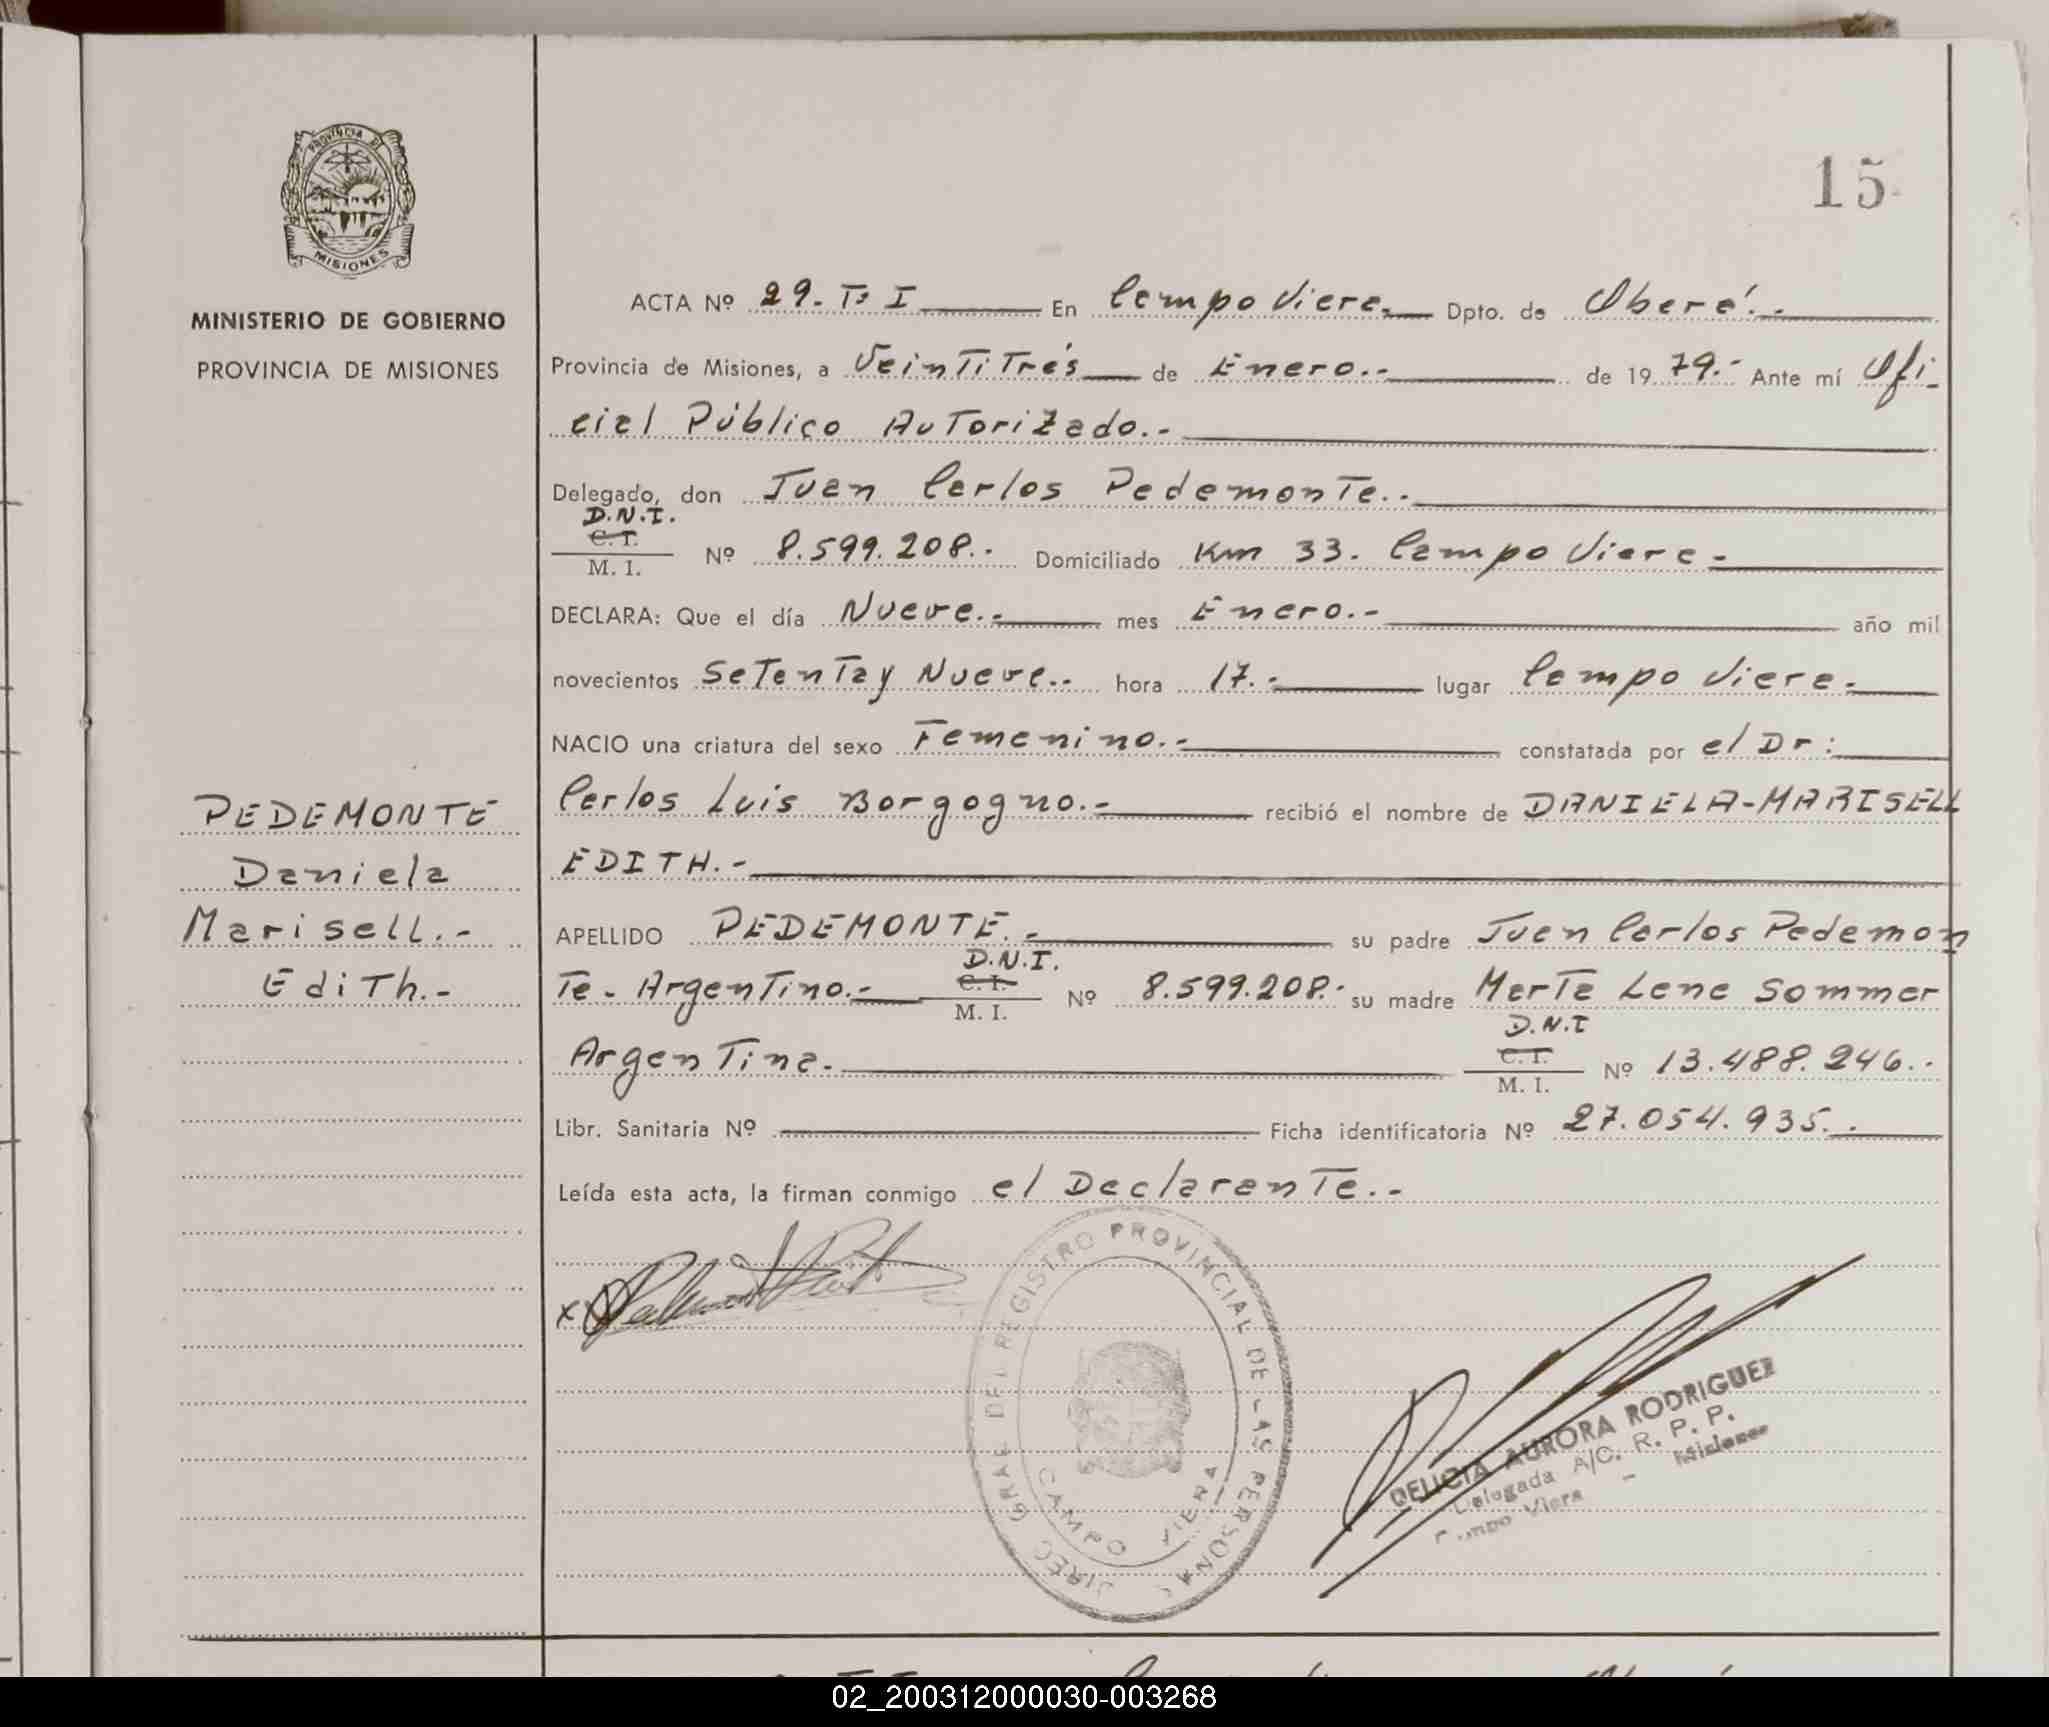 PROVINCIA DE
MISIONES
MINISTERIO DE GOBIERNO
PROVINCIA DE MISIONES
PEDEMONTE
Daniela
Marisell.-
Edith.-
15
ACTA Nº 29. Tº I En Campo Viera.- Dpto. de Oberá.-
Provincia de Misiones, a Veintitrés de Enero.- de 1979.- Ante mí Ofi-
cial Público Autorizado.-
Delegado, don Juan Carlos Pedemonte.-
D.N.I.
C. I.
M. I. Nº 8.599.208.- Domiciliado Km 33. Campo Viera-
DECLARA: Que el día Nueve.- mes Enero.- año mil
novecientos Setenta y Nueve.- hora 17.- lugar Campo Viera.-
NACIO una criatura del sexo Femenino.- constatada por el Dr:
Carlos Luis Borgogno.- recibió el nombre de DANIELA-MARISELL
EDITH.-
APELLIDO PEDEMONTE.- su padre Juan Carlos Pedemon
D.N.I.
te- Argentino.- C. I. M. I. Nº 8.599.208.- su madre Marta Lene Sommer
D.N.I
Argentina.- C. I. M. I. Nº 13.488.246.-
Libr. Sanitaria Nº Ficha identificatoria Nº 27.054.935.-
Leída esta acta, la firman conmigo el Declarante.-
x
DIREC GRAL DEL REGISTRO PROVINCIAL DE LAS PERSONAS
CAMPO VIERA
DELICIA AURORA RODRIGUEZ
Delegada A/C. R. P. P.
Campo Viera - Misiones
02_200312000030-003268